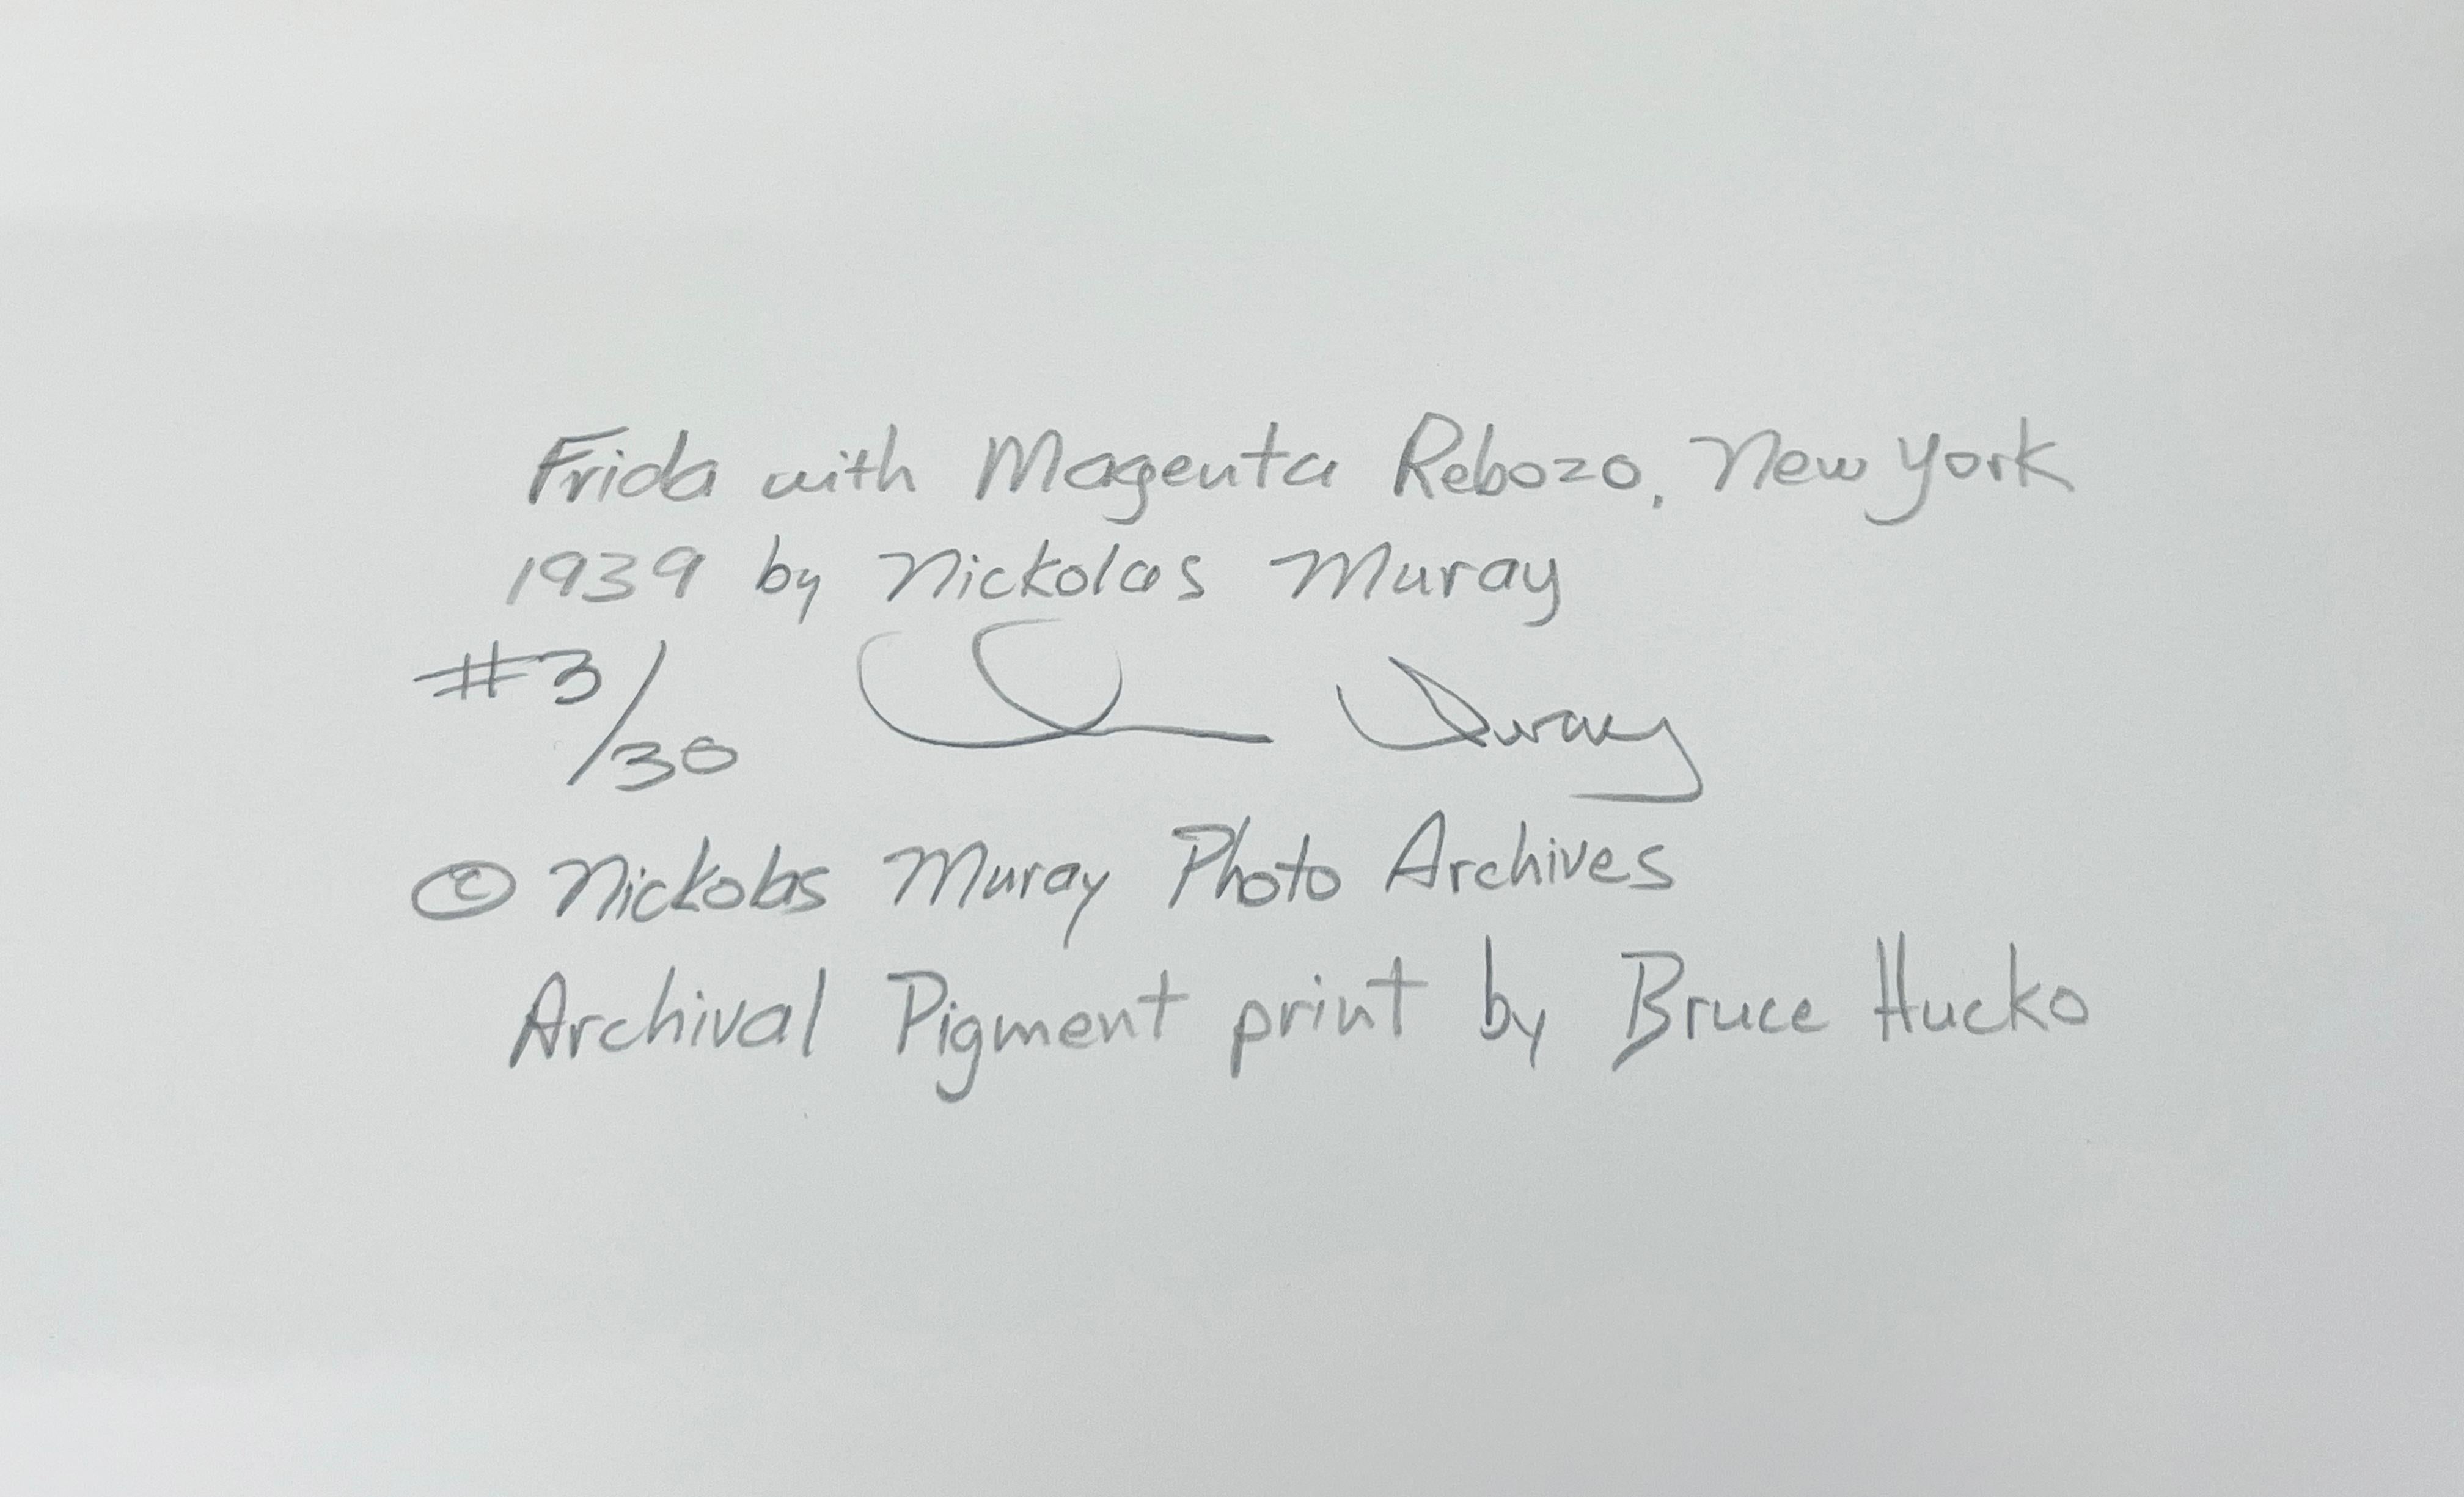 Frida with Magenta Rebozo, New York
1939 by Nickolas Muray
#3/30 Muray
© Nickolas Muray Photo Archives
Archival Pigment print by Bruce Hucko